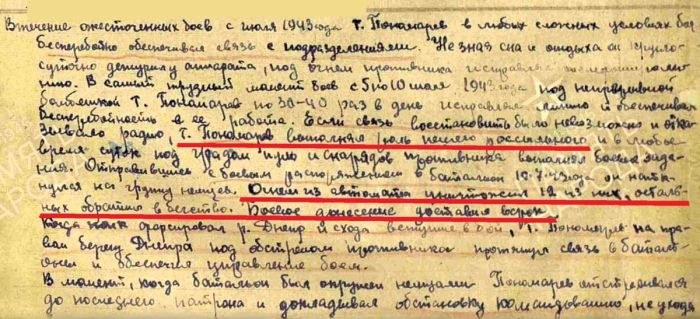 В течение ожесточенных боев с июля 1943 года т. Пономарев в любых сложных условиях боя
бесперебойно обеспечивал связь с подразделениями. Не зная сна и отдыха он кругло-
суточно дежурил у аппарата, под огнем противника исправлял
В самый трудный момент боев с 5 по 10 июля 1943 года под непрерывной
бомбежкой т. Пономарев по 30-40 раз в день исправлял линию и обеспечивал
бесперебойность в ее работе. Если связь восстановить было невозможно и отка-
зывало радио, т. Пономарев выполнял роль пешего рассыльного и в любое
время суток под градом пуль и снарядов противника выполнял боевое зада-
ния. Отправившись с боевым распоряжением в батальон 10.7.43 года он натк-
нулся на группу немцев. Огнем из автомата уничтожил 12 из них, осталь-
ных обратил в бегство. Боевое донесение доставил в срок.
Когда полк форсировал р. Днепр и схода вступил в бой, т. Пономарев на пра-
вом берегу Днепра под обстрелом противника протянул связь в баталь-
оны и обеспечил управление боем.
В момент, когда батальон был окружен немцами Пономарев отстреливался
до последнего патрона и докладывал обстановку командованию, не уходя